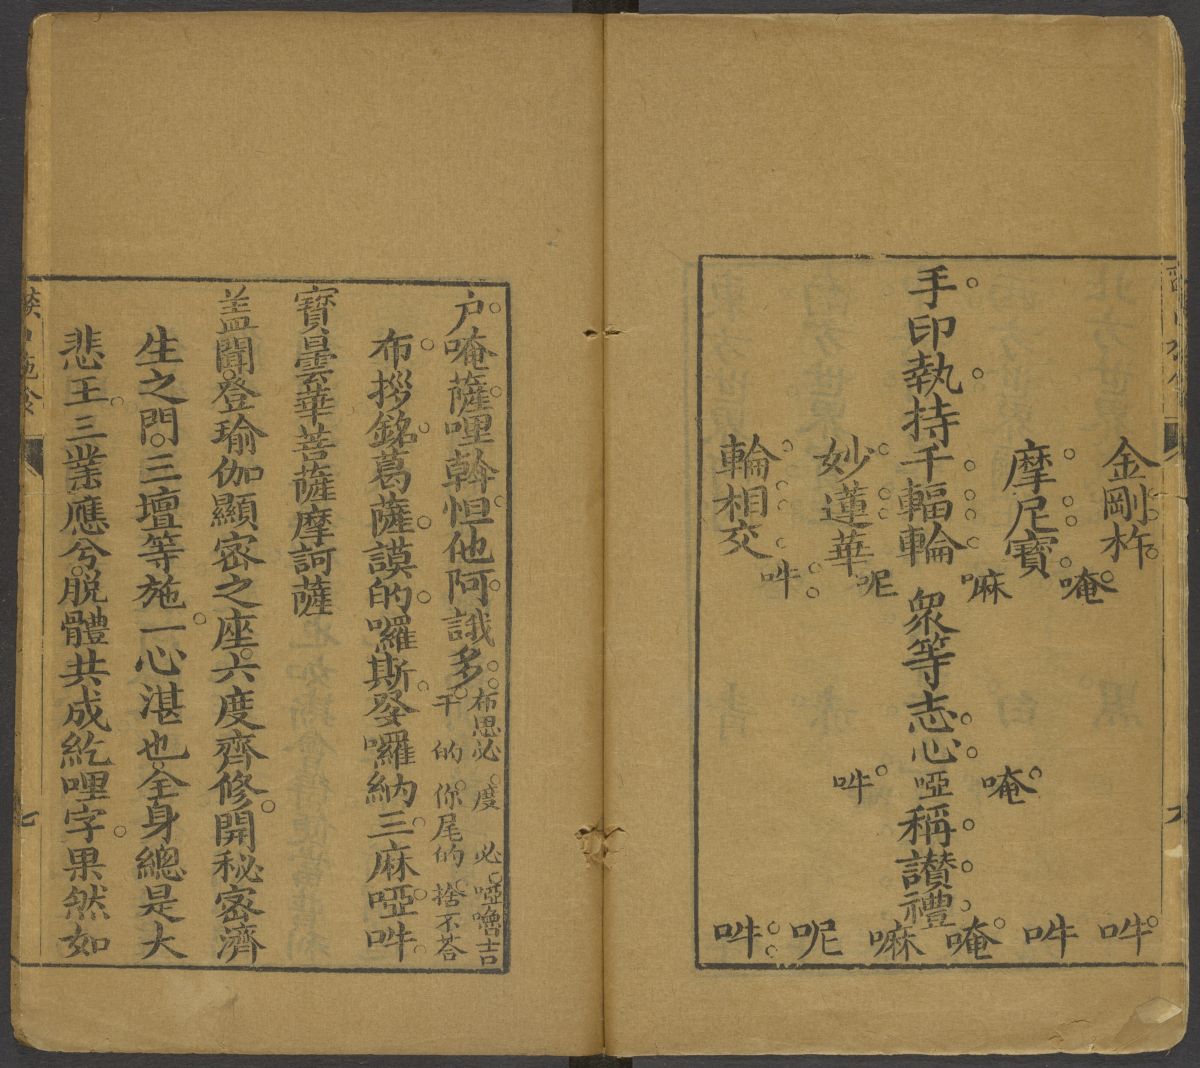 金剛杵 吽
唵
摩尼寶 唵 吽
嘛 唵
手印執持千輻輪 眾等志心啞稱讚禮
嘛
妙蓮華 呢 吽 呢
吽
輪相交 吽
户唵薩哩斡怛他阿誐多 布思必 度 必 啞嚕吉
干的 你尾的 捨不答
布拶銘葛薩謨的囉斯癹囉納三麻啞吽
寶曇華菩薩摩訶薩
盖聞登瑜伽顯密之座六度齊修開秘密濟
生之門三壇等施一心湛也全身總是大
悲王三業應兮脱體共成紇哩字果然如
七